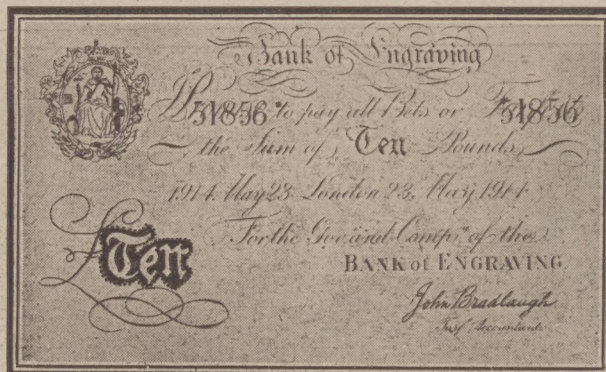 Bank of Engraving
51856 to pay all Bets or 51856
the Sum of Ten Pounds
1914 May 23 London 23 May 1914
For the Gov. and Comp.ª of the
BANK of ENGRAVING
£Ten John Bradlaugh
Turf Accountant